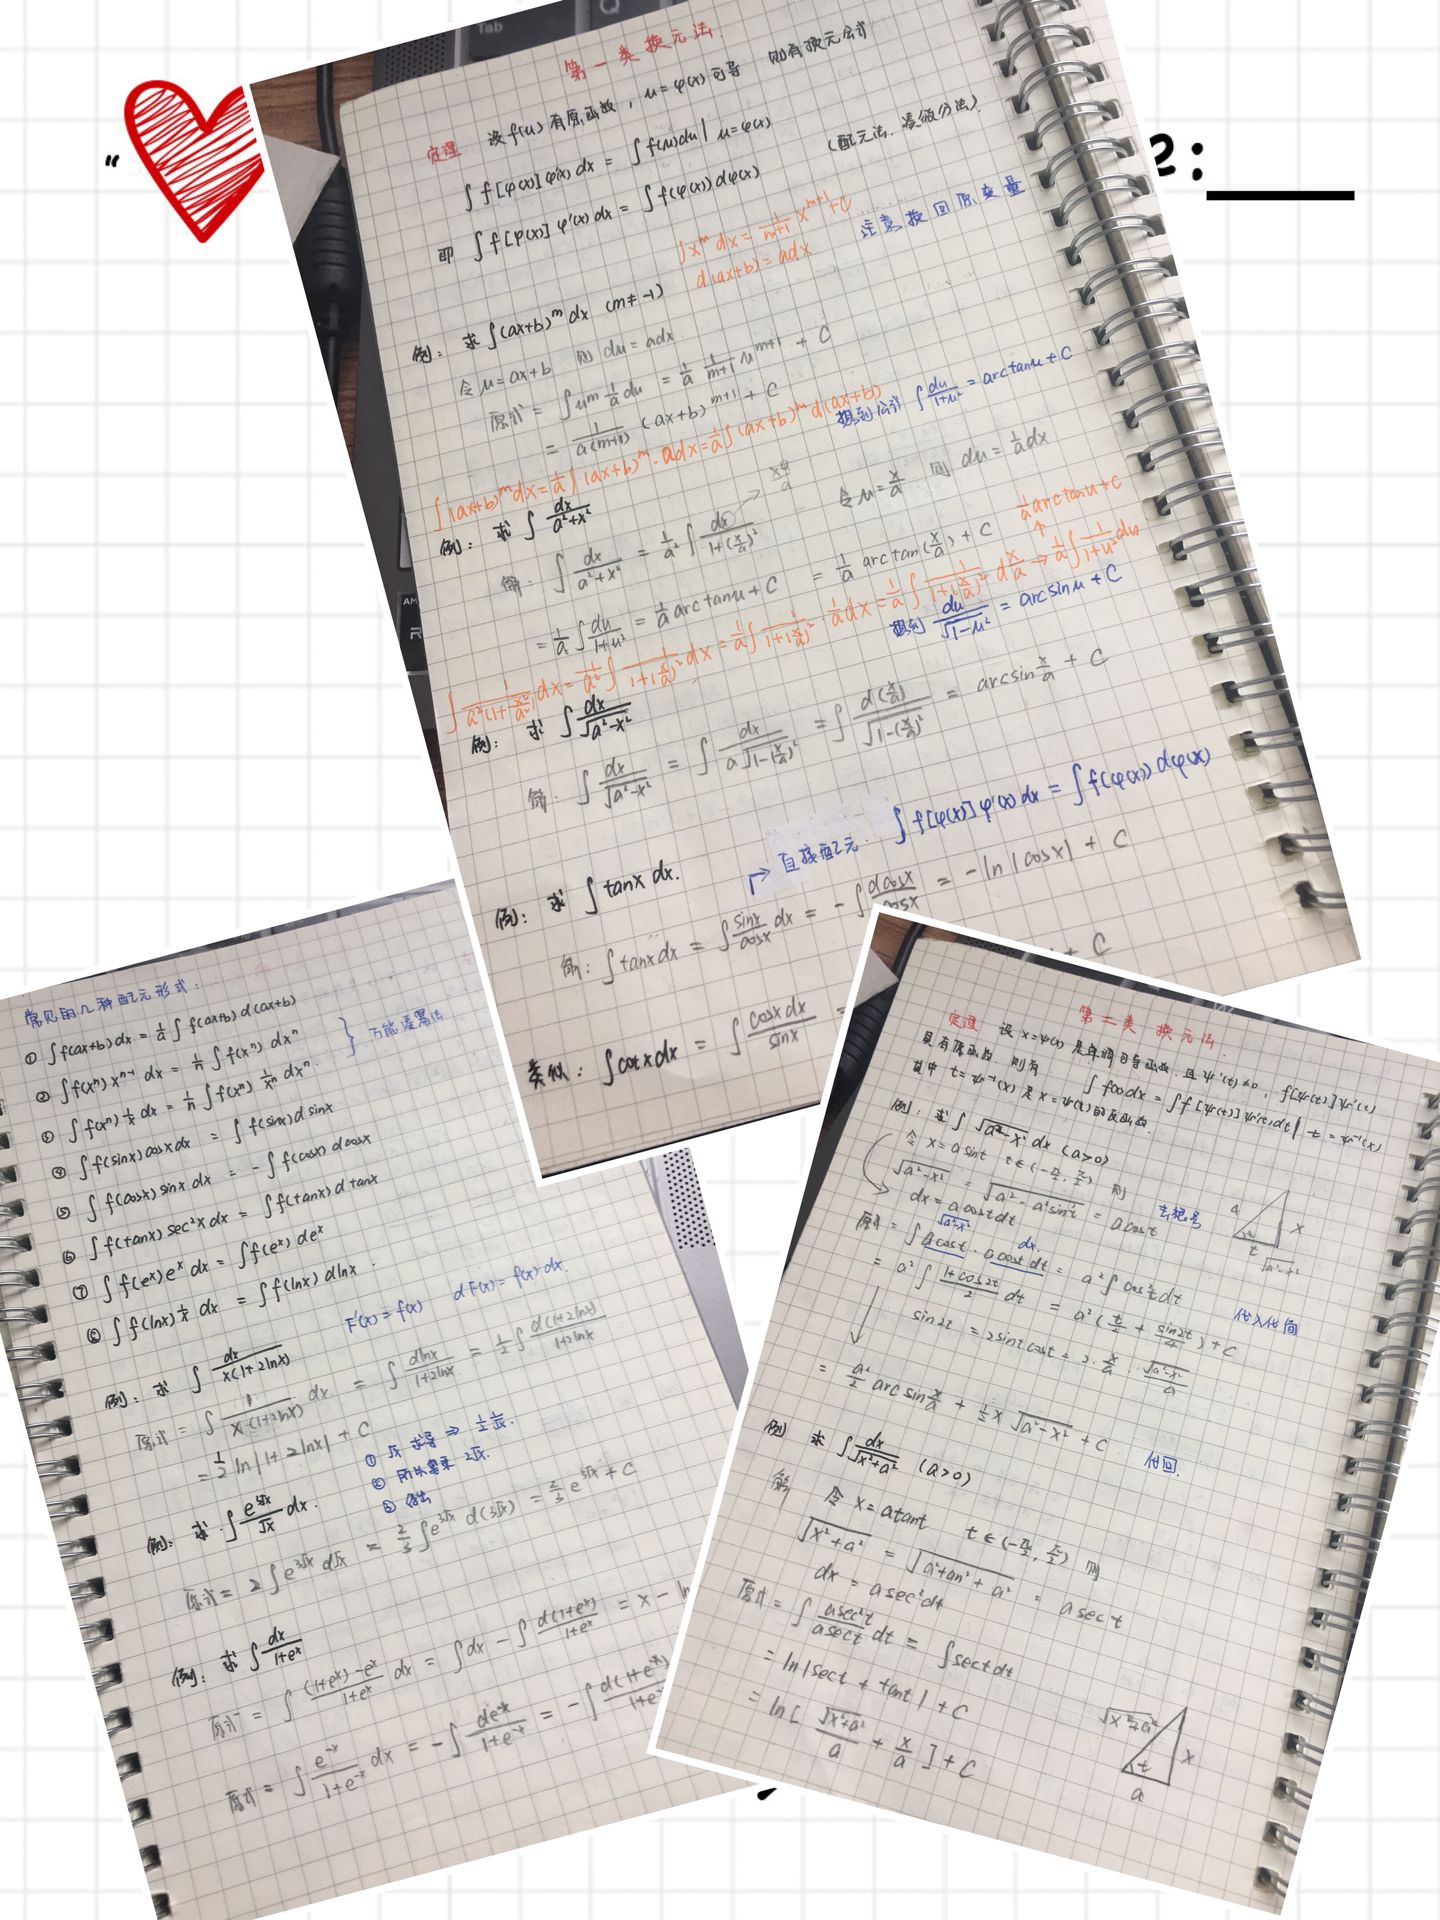 第一类换元法.
定理 设f(u)有原函数, u=φ(x)可导 则有换元公式
∫f[φ(x)]φ'(x)dx = ∫f(u)du | u=φ(x)
即 ∫f[φ(x)]φ'(x)dx = ∫f(φ(x))dφ(x) (配元法. 凑微分法).
∫x^m dx = 1/(m+1) x^(m+1) + C
d(ax+b) = adx
注意换回原变量
例: 求∫(ax+b)^m dx (m≠-1)
令u=ax+b 则 du=adx
原式 = ∫u^m 1/a du = 1/a 1/(m+1) u^(m+1) + C
= 1/(a(m+1)) (ax+b)^(m+1) + C
∫(ax+b)^m dx = 1/a∫(ax+b)^m·adx = 1/a∫(ax+b)^m d(ax+b)
想到公式 ∫du/(1+u²) = arctanu + C
例: 求∫dx/(a²+x²)
令u=x/a 则 du=1/a dx
解: ∫dx/(a²+x²) = 1/a²∫dx/(1+(x/a)²)
= 1/a∫du/(1+u²) = 1/a arctanu + C = 1/a arctan(x/a) + C
1/a arctanu+C
∫1/(a²(1+x²/a²))dx = 1/a²∫1/(1+(x/a)²)dx = 1/a∫1/(1+(x/a)²)·1/a dx = 1/a∫1/(1+(x/a)²) d x/a → 1/a∫1/(1+u²)du
想到 du/√(1-u²) = arcsinu + C
例: 求∫dx/√(a²-x²)
解: ∫dx/√(a²-x²) = ∫dx/(a√(1-(x/a)²)) = ∫d(x/a)/√(1-(x/a)²) = arcsin x/a + C
直接配元. ∫f[φ(x)]φ'(x)dx = ∫f(φ(x))dφ(x)
例: 求∫tanx dx.
解: ∫tanxdx = ∫sinx/cosx dx = -∫dcosx/cosx = -ln|cosx| + C
类似: ∫cotxdx = ∫cosxdx/sinx =
+ C
常见的几种配元形式:
① ∫f(ax+b)dx = 1/a∫f(ax+b)d(ax+b)
② ∫f(x^n)x^(n-1)dx = 1/n∫f(x^n)dx^n
③ ∫f(x^n)1/x dx = 1/n∫f(x^n)1/x^n dx^n.
万能凑幂法
④ ∫f(sinx)cosxdx = ∫f(sinx)dsinx
⑤ ∫f(cosx)sinxdx = -∫f(cosx)dcosx
⑥ ∫f(tanx)sec²xdx = ∫f(tanx)dtanx
⑦ ∫f(e^x)e^x dx = ∫f(e^x)de^x
⑧ ∫f(lnx)1/x dx = ∫f(lnx)dlnx.
F'(x)=f(x) dF(x)=f(x)dx.
例: 求∫dx/(x(1+2lnx))
原式 = ∫1/(x·(1+2lnx))dx = ∫dlnx/(1+2lnx) = 1/2∫d(1+2lnx)/(1+2lnx)
= 1/2 ln|1+2lnx| + C
① √x 求导 ⇒ 1/2 1/√x.
② 所以要乘 2√x.
例: 求∫e^(3√x)/√x dx.
原式 = 2∫e^(3√x)d√x = 2/3∫e^(3√x)d(3√x) = 2/3 e^(3√x) + C
例: 求∫dx/(1+e^x)
原式 = ∫((1+e^x)-e^x)/(1+e^x)dx = ∫dx - ∫d(1+e^x)/(1+e^x) = x - ln
原式 = ∫e^(-x)/(1+e^(-x))dx = -∫de^(-x)/(1+e^(-x)) = -∫d(1+e^(-x))/(1+e^(-x))
第二类换元法.
定理 设x=ψ(t)是单调可导函数, 且ψ'(t)≠0, f[ψ(t)]ψ'(t)
具有原函数, 则有. ∫f(x)dx = ∫f[ψ(t)]ψ'(t)dt | t=ψ^(-1)(x)
其中 t=ψ^(-1)(x)是x=ψ(t)的反函数.
例: 求∫√(a²-x²)dx (a>0)
令x=asint t∈(-π/2, π/2) 则
√(a²-x²) = √(a²-a²sin²t) = acost 去根号
dx = acostdt
a x t √(a²-x²)
√(a²-x²) dx
原式 = ∫acost·acostdt = a²∫cos²tdt
= a²∫(1+cos2t)/2 dt = a²(t/2 + sin2t/4) + C
sin2t = 2sintcost = 2·x/a·√(a²-x²)/a
= a²/2 arcsin x/a + 1/2 x√(a²-x²) + C
代回.
例 求∫dx/√(x²+a²) (a>0)
解 令x=atant t∈(-π/2, π/2) 则
√(x²+a²) = √(a²tan²t+a²) = asect
dx = asec²dt
原式 = ∫asec²t/asect dt = ∫sectdt
= ln|sect+tant| + C
= ln[√(x²+a²)/a + x/a] + C
√(x²+a²) x t a